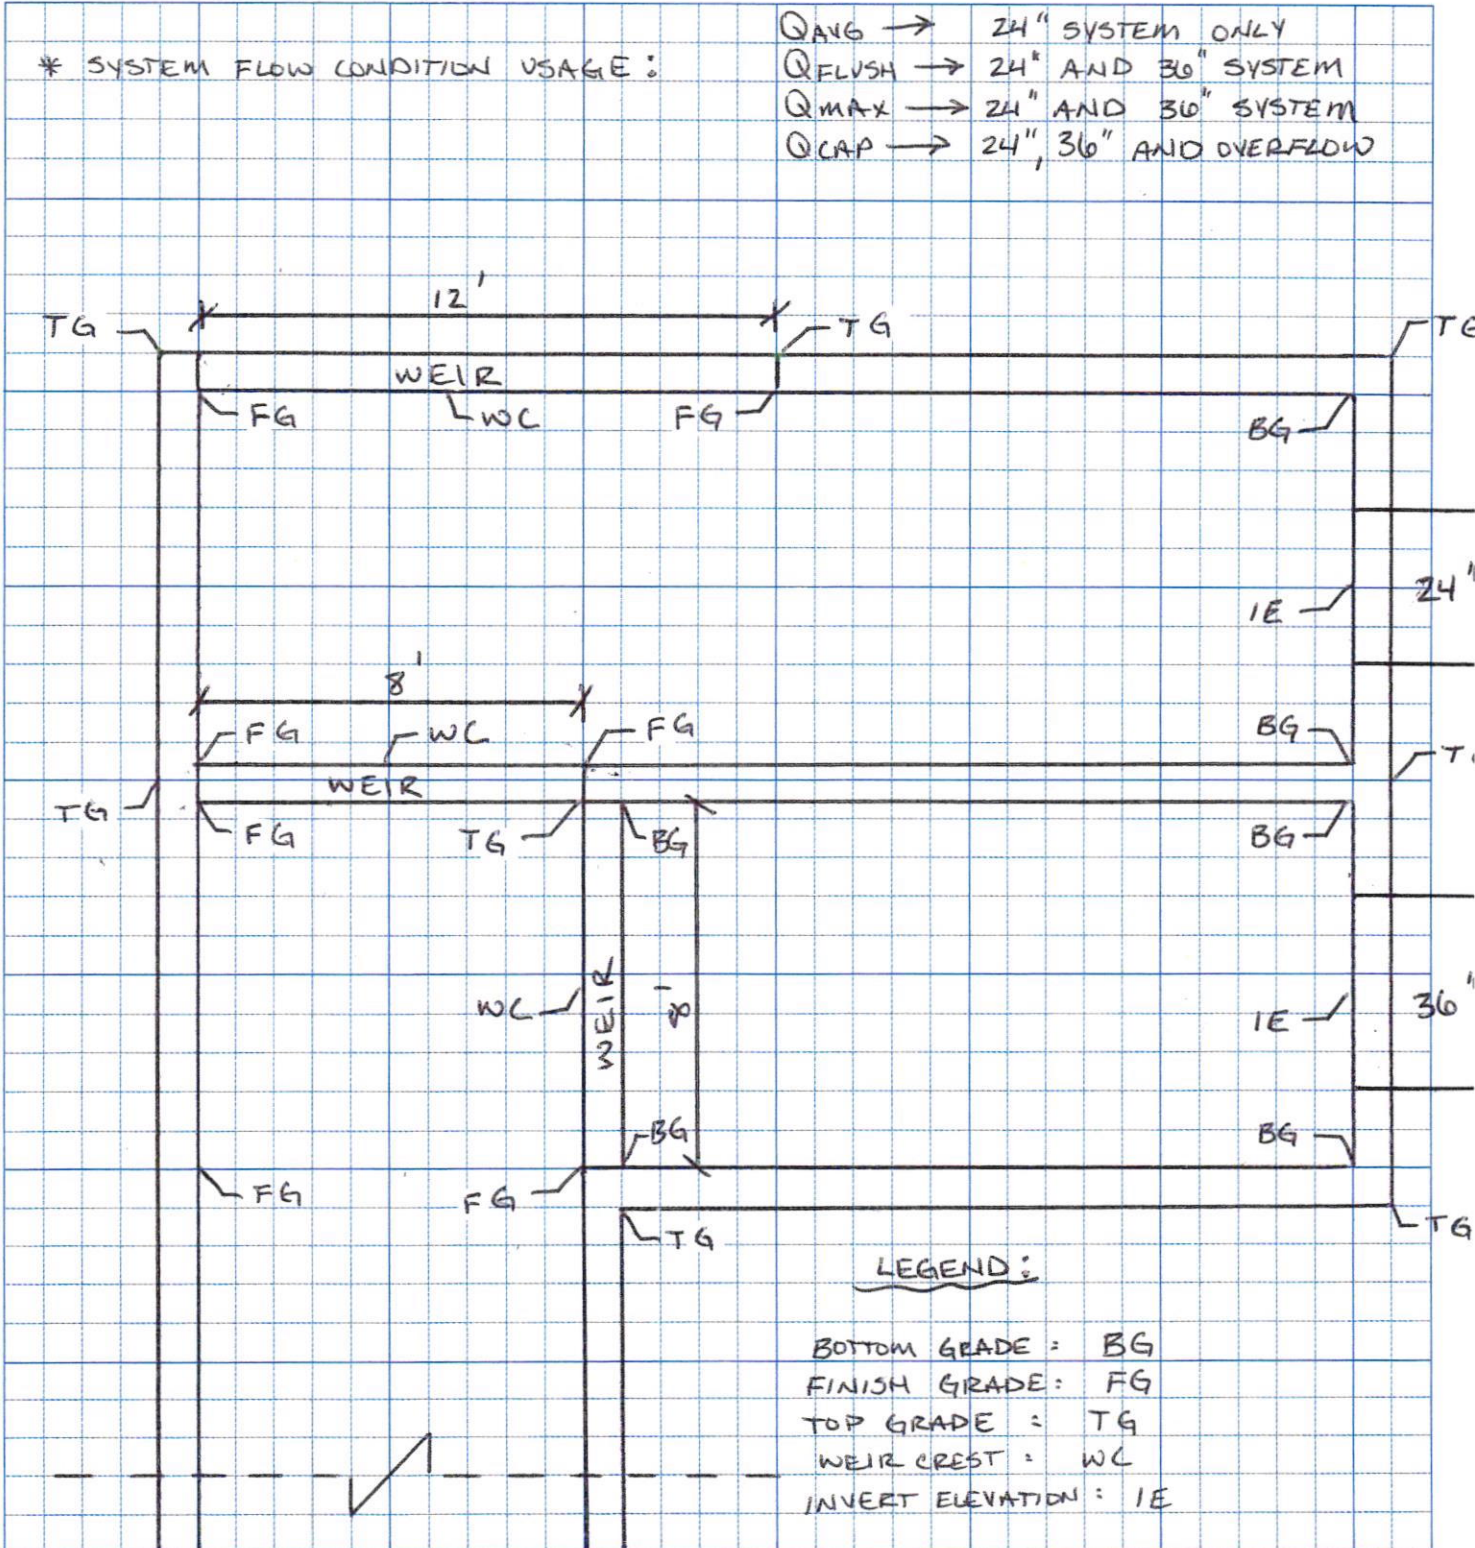 QAVG → 24" SYSTEM ONLY
* SYSTEM FLOW CONDITION USAGE:
QFLUSH → 24" AND 36" SYSTEM
QMAX → 24" AND 36" SYSTEM
QCAP → 24", 36" AND OVERFLOW
12'
TG
TG
TG
WEIR
FG
WC
FG
BG
IE
24"
8'
FG
WC
FG
BG
WEIR
TG
FG
TG
BG
BG
WC
WEIR
8'
IE
36"
BG
BG
FG
FG
TG
TG
LEGEND:
BOTTOM GRADE: BG
FINISH GRADE: FG
TOP GRADE : TG
WEIR CREST : WC
INVERT ELEVATION: IE